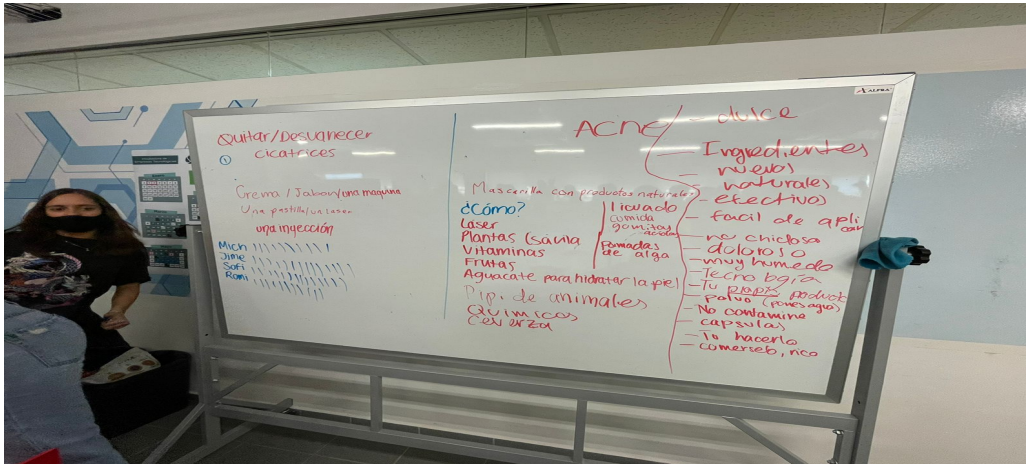 Quitar/Desvanecer
① cicatrices
Crema / Jabon/una maquina
Una pastilla/un laser
una inyección
Mich
Jime
Sofi
Romi
ACNE
Mascarilla con productos naturales
¿Cómo?
Laser
Plantas (savila
Vitaminas
Frutas
Aguacate para hidratar la piel
Pip. de animales
Químicos
Cerveza
licuado
comida
gomitas
acidas
Pomadas
de alga
- dulce
- Ingredientes
- nuevos
naturales
- efectivo
- facil de apli
car
- no chicloso
- doloroso
- muy humedo
- Tecnología
- Tu propio producto
- polvo (pones agua)
- No contamine
- capsulas
- Tu hacerlo
- comerselo, rico
ALPHA